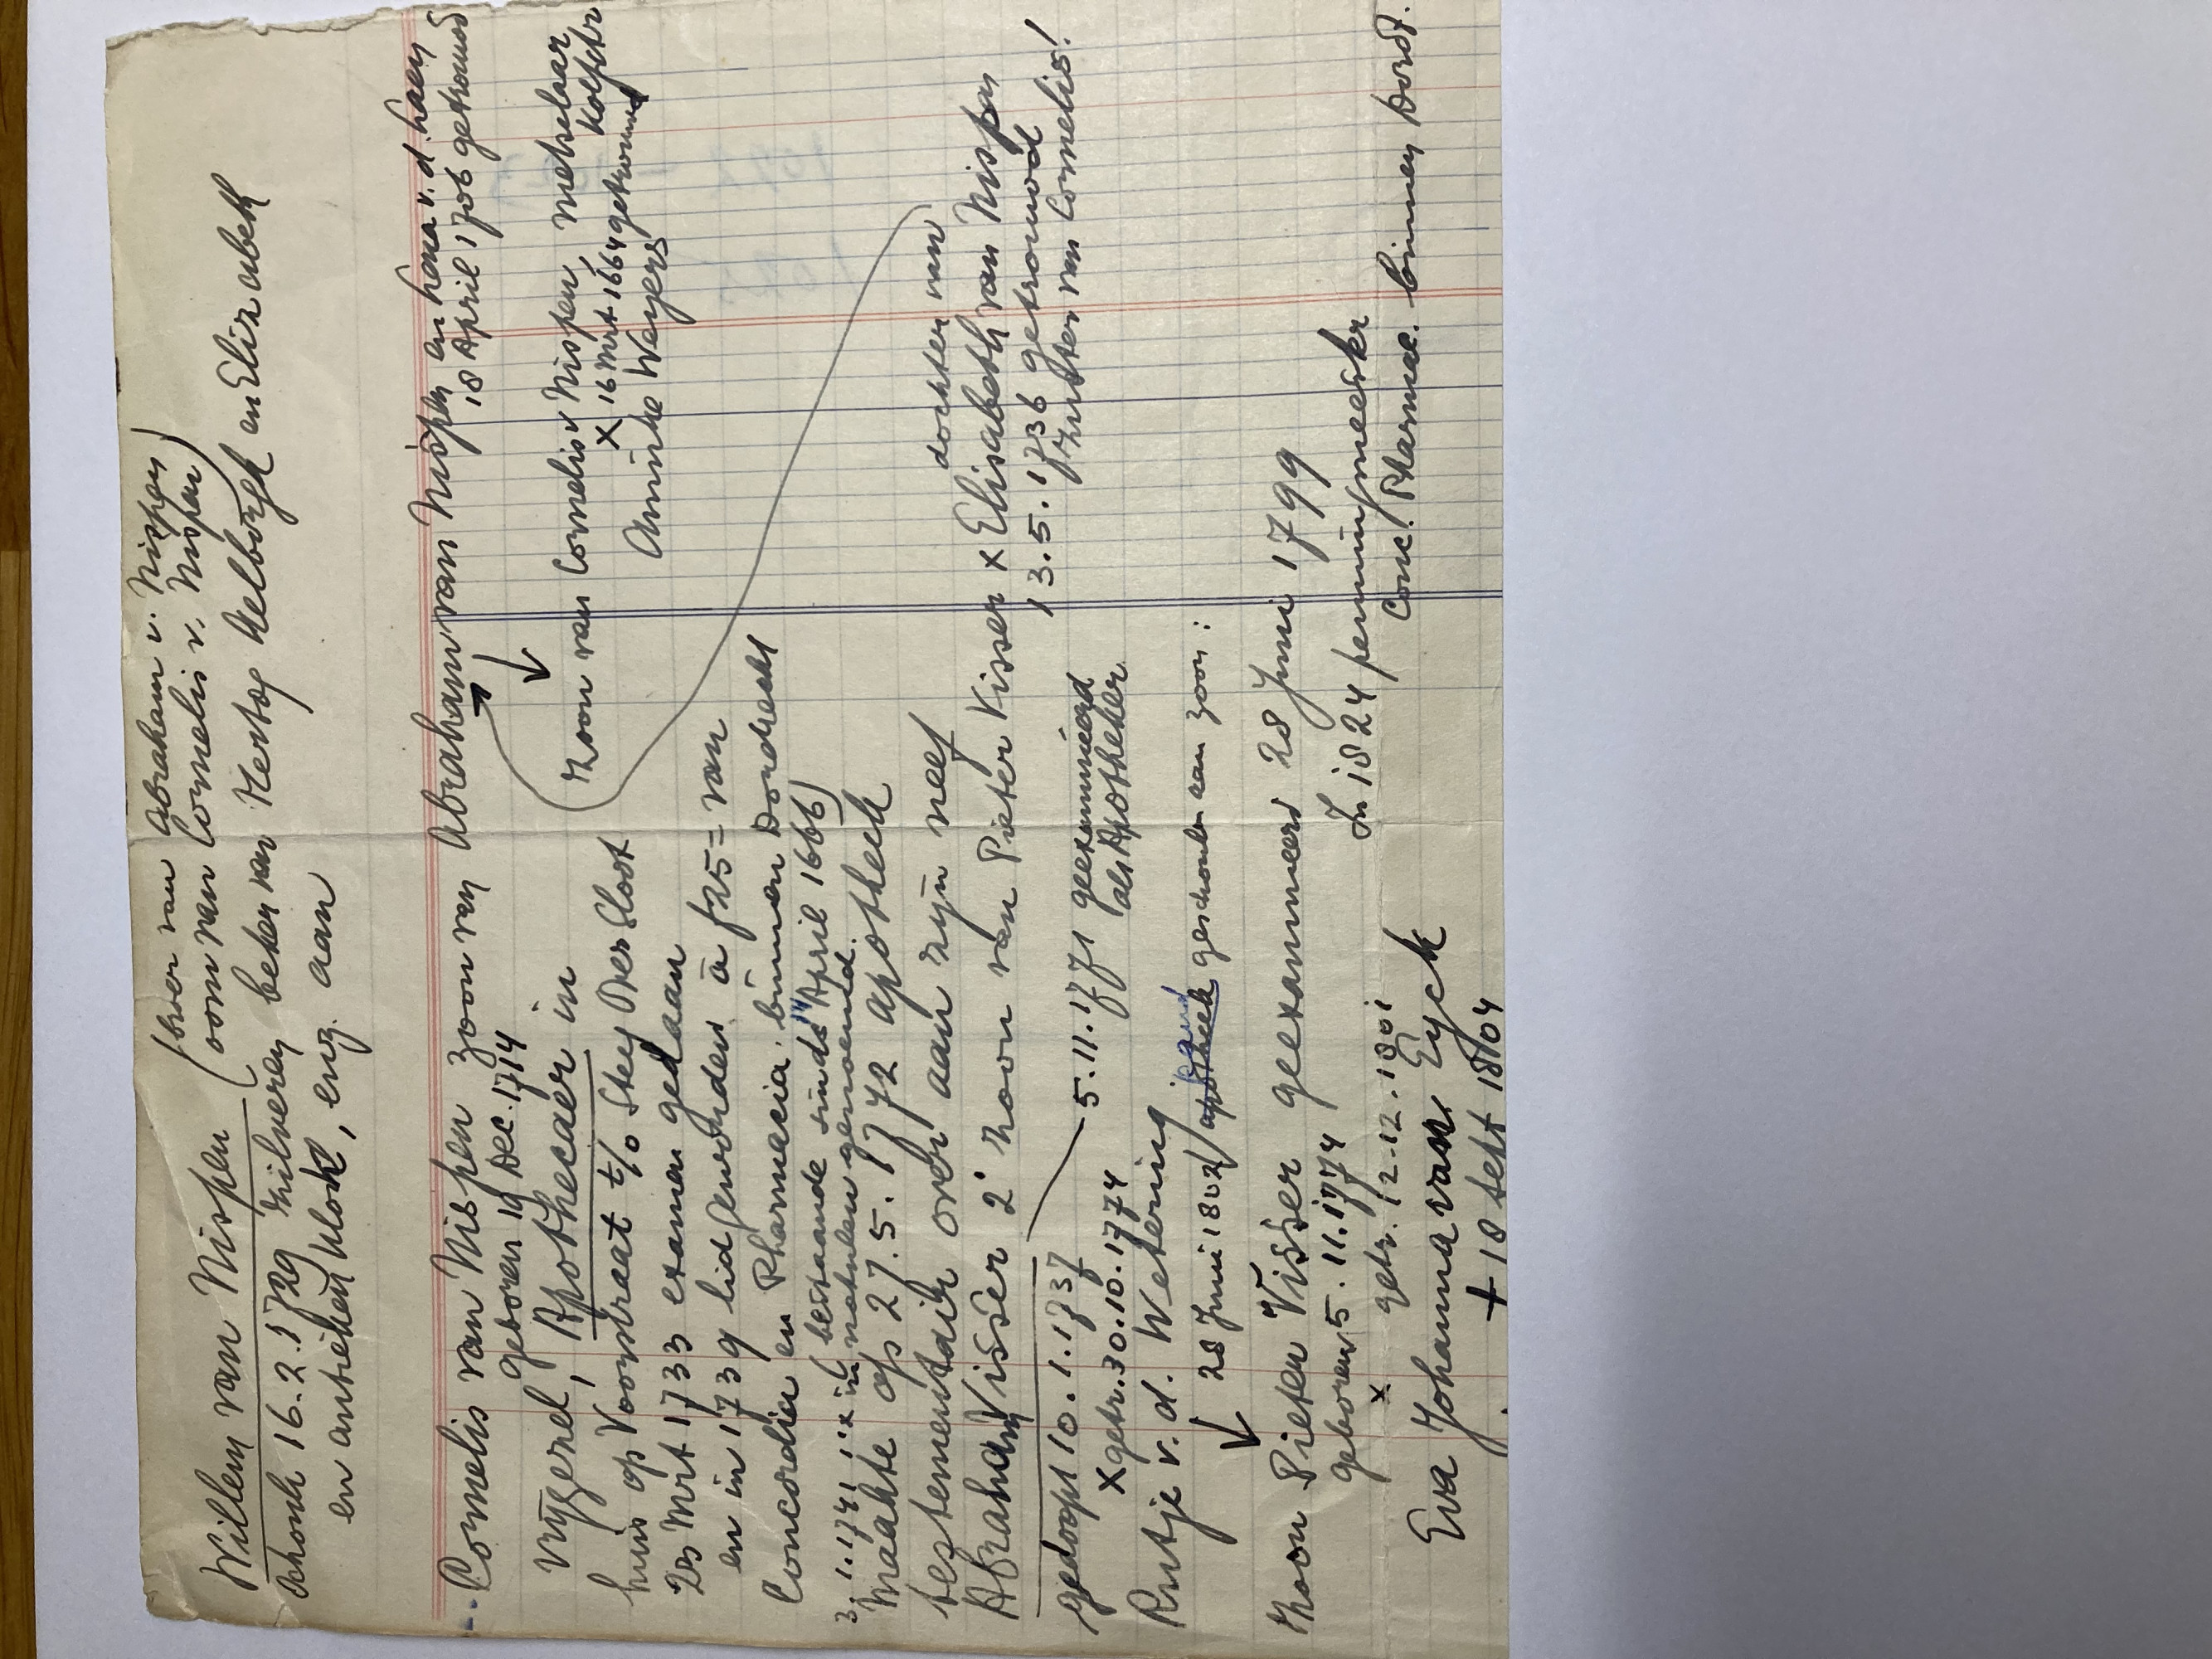 Willem van Nispen (broer van Abraham v. Nispen
oom van Cornelis v. Nispen)
schonk 16.2.1729 zilveren beker van Hertog Aelbregt en Elizabeth
en antieken klok, enz. aan
Cornelis van Nispen zoon van Abraham van Nispen en v.d. haen
geboren 19 Dec. 1714
18 April 1706 getrouwd
vrijgezel, Apothecaer in
zoon van Cornelis v Nispen, metselaar
X 16 Mrt 1664 getrouwd
Annike Weyers
huis op Voorstraat t/o Steeg Over Sloot
23 Mrt 1733 examen gedaan
en in 1739 lid geworden à f 25 = van
Concordia en Pharmacia binnen Dordrecht
(bestaande sinds 14 April 1666)
3.1.1741 1e x in notulen genoemd.
Maakte op 27.5.1772 apotheek
testementair over aan zijn neef
dochter van
Abraham Visser 2e zoon van Pieter Visser x Elisabeth van Nispen
13.5.1736 getrouwd
zuster van Cornelis!
gedoopt 10.1.1737 5.11.1771 geexamineerd
als Apotheker
X getr. 30.10.1774
Rutje v.d. Wetering
28 Juni 1802 apotheek pand geschonken aan zoon:
zoon Pieter Visser geexamineerd 28 Juni 1799
geboren 5.11.1774 In 1824 penningmeester
x getr. 12.12.1801 Conc. Pharmac. binnen Dordt.
Eva Johanna van Eyck
+ 18 Sept 1804